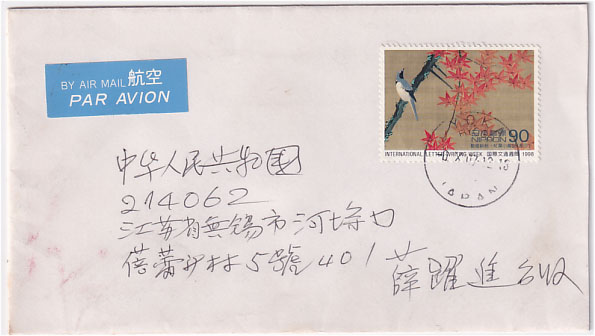 BY AIR MAIL 航空
PAR AVION
日本郵便 90
NIPPON
INTERNATIONAL LETTER WRITING WEEK 国際文通週間 1998
JAPAN
中华人民共和國
214062
江苏省無锡市河埒口
蓓蕾新村5號401
薛躍進 台收